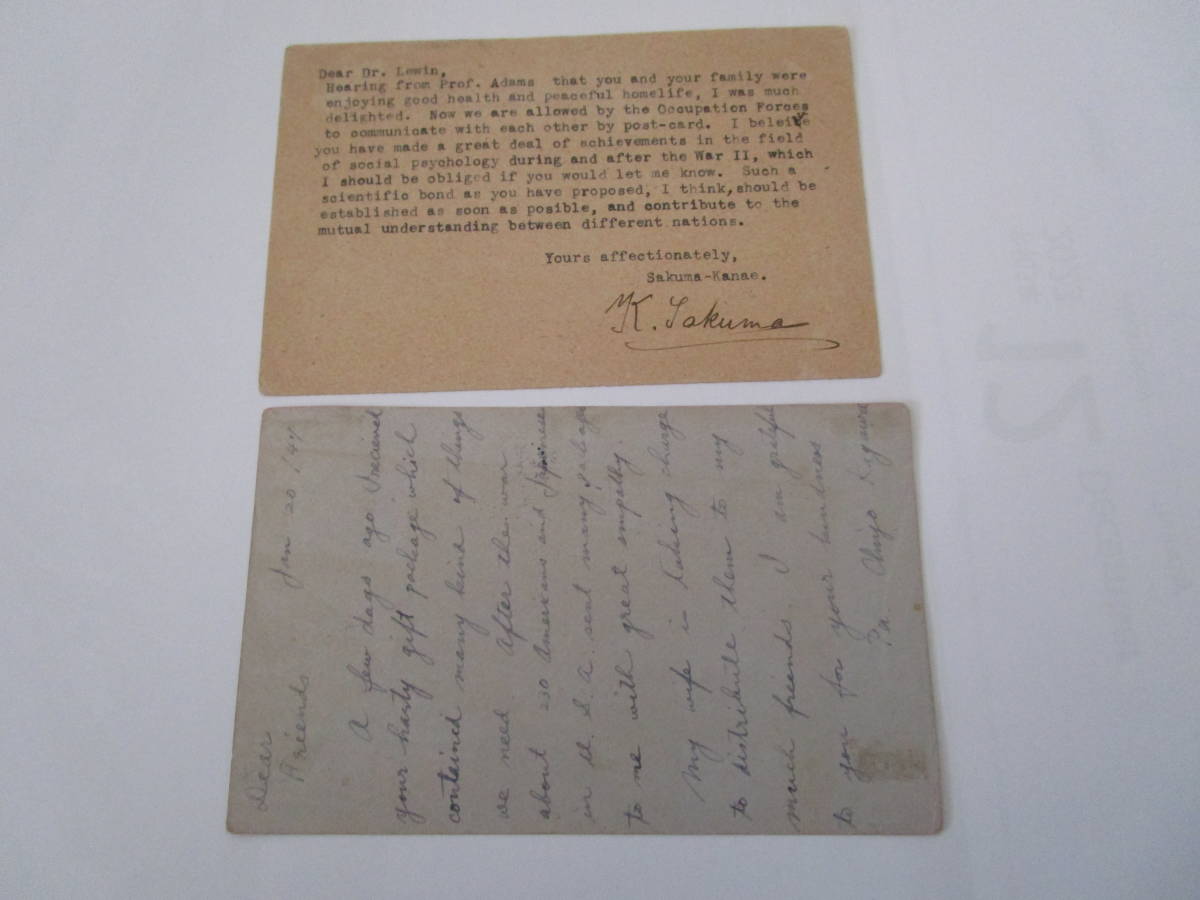 Dear Dr. Lewin,
Hearing from Prof. Adams that you and your family were
enjoying good health and peaceful homelife, I was much
delighted. Now we are allowed by the Occupation Forces
to communicate with each other by post-card. I beleive
you have made a great deal of achievements in the field
of social psychology during and after the War II, which
I should be obliged if you would let me know. Such a
scientific bond as you have proposed, I think, should be
established as soon as posible, and contribute to the
mutual understanding between different nations.
Yours affectionately,
Sakuma-Kanae.
K. Sakuma
Dear
Friends Jan 20
A few days ago I recieved
your hasty gift package which
contained many kind of things
we need After the war
about 230 Americans and Japanese
in U. S. A. sent many
to me with great empathy.
My wife is taking charge
to distribute them to my
much friends. I am grateful
to you for your kindness